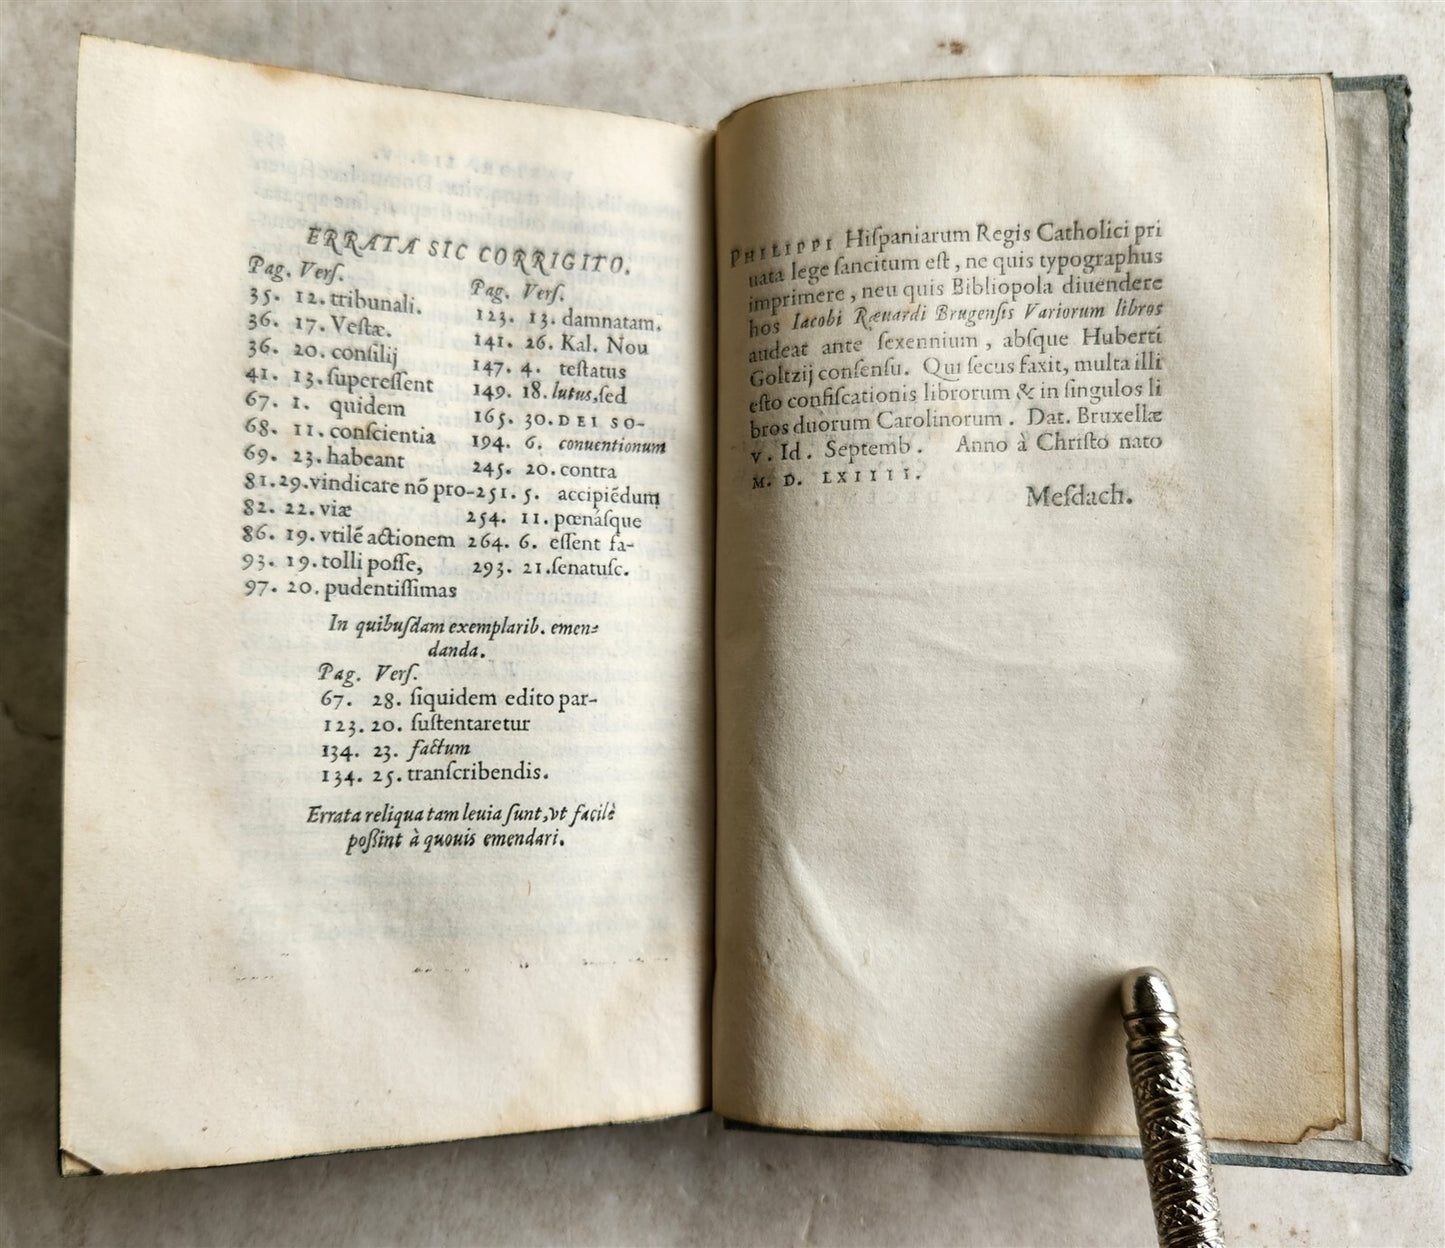 ERRATA SIC CORRIGITO.
Pag. Verſ.
35. 12. tribunali.
36. 17. Veſtæ.
36. 20. conſilij
41. 13. ſupereſſent
67. 1. quidem
68. 11. conſcientia
69. 23. habeant
81. 29. vindicare nõ pro-
82. 22. viæ
86. 19. vtilẽ actionem
93. 19. tolli poſſe,
97. 20. pudentiſſimas
Pag. Verſ.
123. 13. damnatam.
141. 26. Kal. Nou
147. 4. teſtatus
149. 18. lutus, ſed
165. 30. DEI SO-
194. 6. conuentionum
245. 20. contra
251. 5. accipiẽdum
254. 11. pœnáſque
264. 6. eſſent fa-
293. 21. ſenatuſc.
In quibuſdam exemplarib. emen-
danda.
Pag. Verſ.
67. 28. ſiquidem edito par-
123. 20. ſuſtentaretur
134. 23. factum
134. 25. tranſcribendis.
Errata reliqua tam leuia ſunt, vt facilè
poßint à quouis emendari.
PHILIPPI Hiſpaniarum Regis Catholici pri
uata lege ſancitum eſt, ne quis typographus
imprimere, neu quis Bibliopola diuendere
hos Iacobi Ræuardi Brugenſis Variorum libros
audeat ante ſexennium, abſque Huberti
Goltzij conſenſu. Qui ſecus faxit, multa illi
eſto confiſcationis librorum & in ſingulos li
bros duorum Carolinorum. Dat. Bruxellæ
V. Id. Septemb. Anno à Chriſto nato
M. D. LXIIII.
Meſdach.